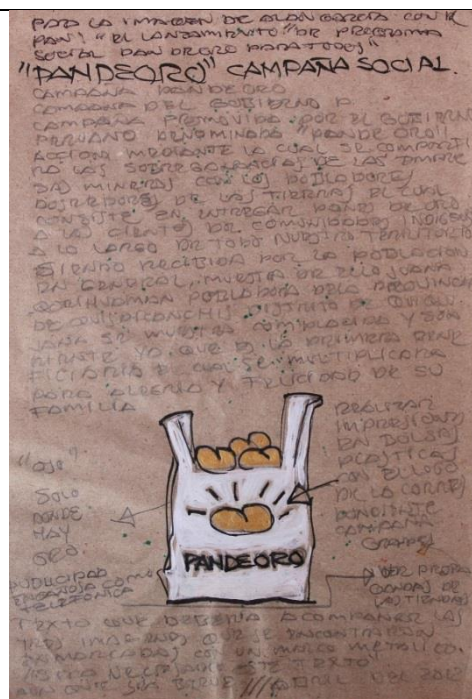 PARA LA IMAGEN DE ALAN GARCIA CON EL
PAN: "EL LANZAMIENTO" DE PROGRAMA
SOCIAL PAN DE ORO PARA TODOS"
"PANDEORO" CAMPAÑA SOCIAL.
CAMPAÑA PANDEORO
CAMPAÑA DEL GOBIERNO
CAMPAÑA PROMOVIDA POR EL GOBIERN
PERUANO DENOMINADA "PAN DE ORO"
ACCION MEDIANTE LA CUAL SE COMPARTI
RA LAS SOBREGANANCIAS DE LAS
MINERAS CON LOS POBLADORES
DE LAS TIERRAS EL CUAL
CONSISTE EN ENTREGAR PANES DE ORO
A LAS CIENTOS DE COMUNIDADES INDIGEN
A LO LARGO DE TODO NUESTRO TERRITORIO
SIENDO RECIBIDA POR LA POBLACION
EN GENERAL, MUESTRA DE ELLO JUANA
POBLADORA DE LA PROVINCIA
DE QUISPICANCHIS DISTRITO DE
JUANA SE MUESTRA COMPLACIDA Y SON
RIENTE YA QUE ES LA PRIMERA BENE
FICIARIA EL CUAL SE MULTIPLICARA
PARA ALEGRIA Y FELICIDAD DE SU
FAMILIA
REALIZAR
IMPRESIONES
EN BOLSAS
PLASTICAS
CON EL LOGO
DE LA CORRES
PONDIENTE
CAMPAÑA
"OJO"
SOLO
DONDE
HAY
ORO.
PANDEORO
PUBLICIDAD
ENGAÑOSA COMO
TELEFONICA
VER PROPA
GANDAS DE
LAS TIENDAS
TEXTO QUE DEBERIA ACOMPAÑAR LAS
TRES IMAGENES QUE SE ENCONTRARAN
ENMARCADAS CON UN MARCO METALICO.
ESTE TEXTO"
ABRIL DEL 2012